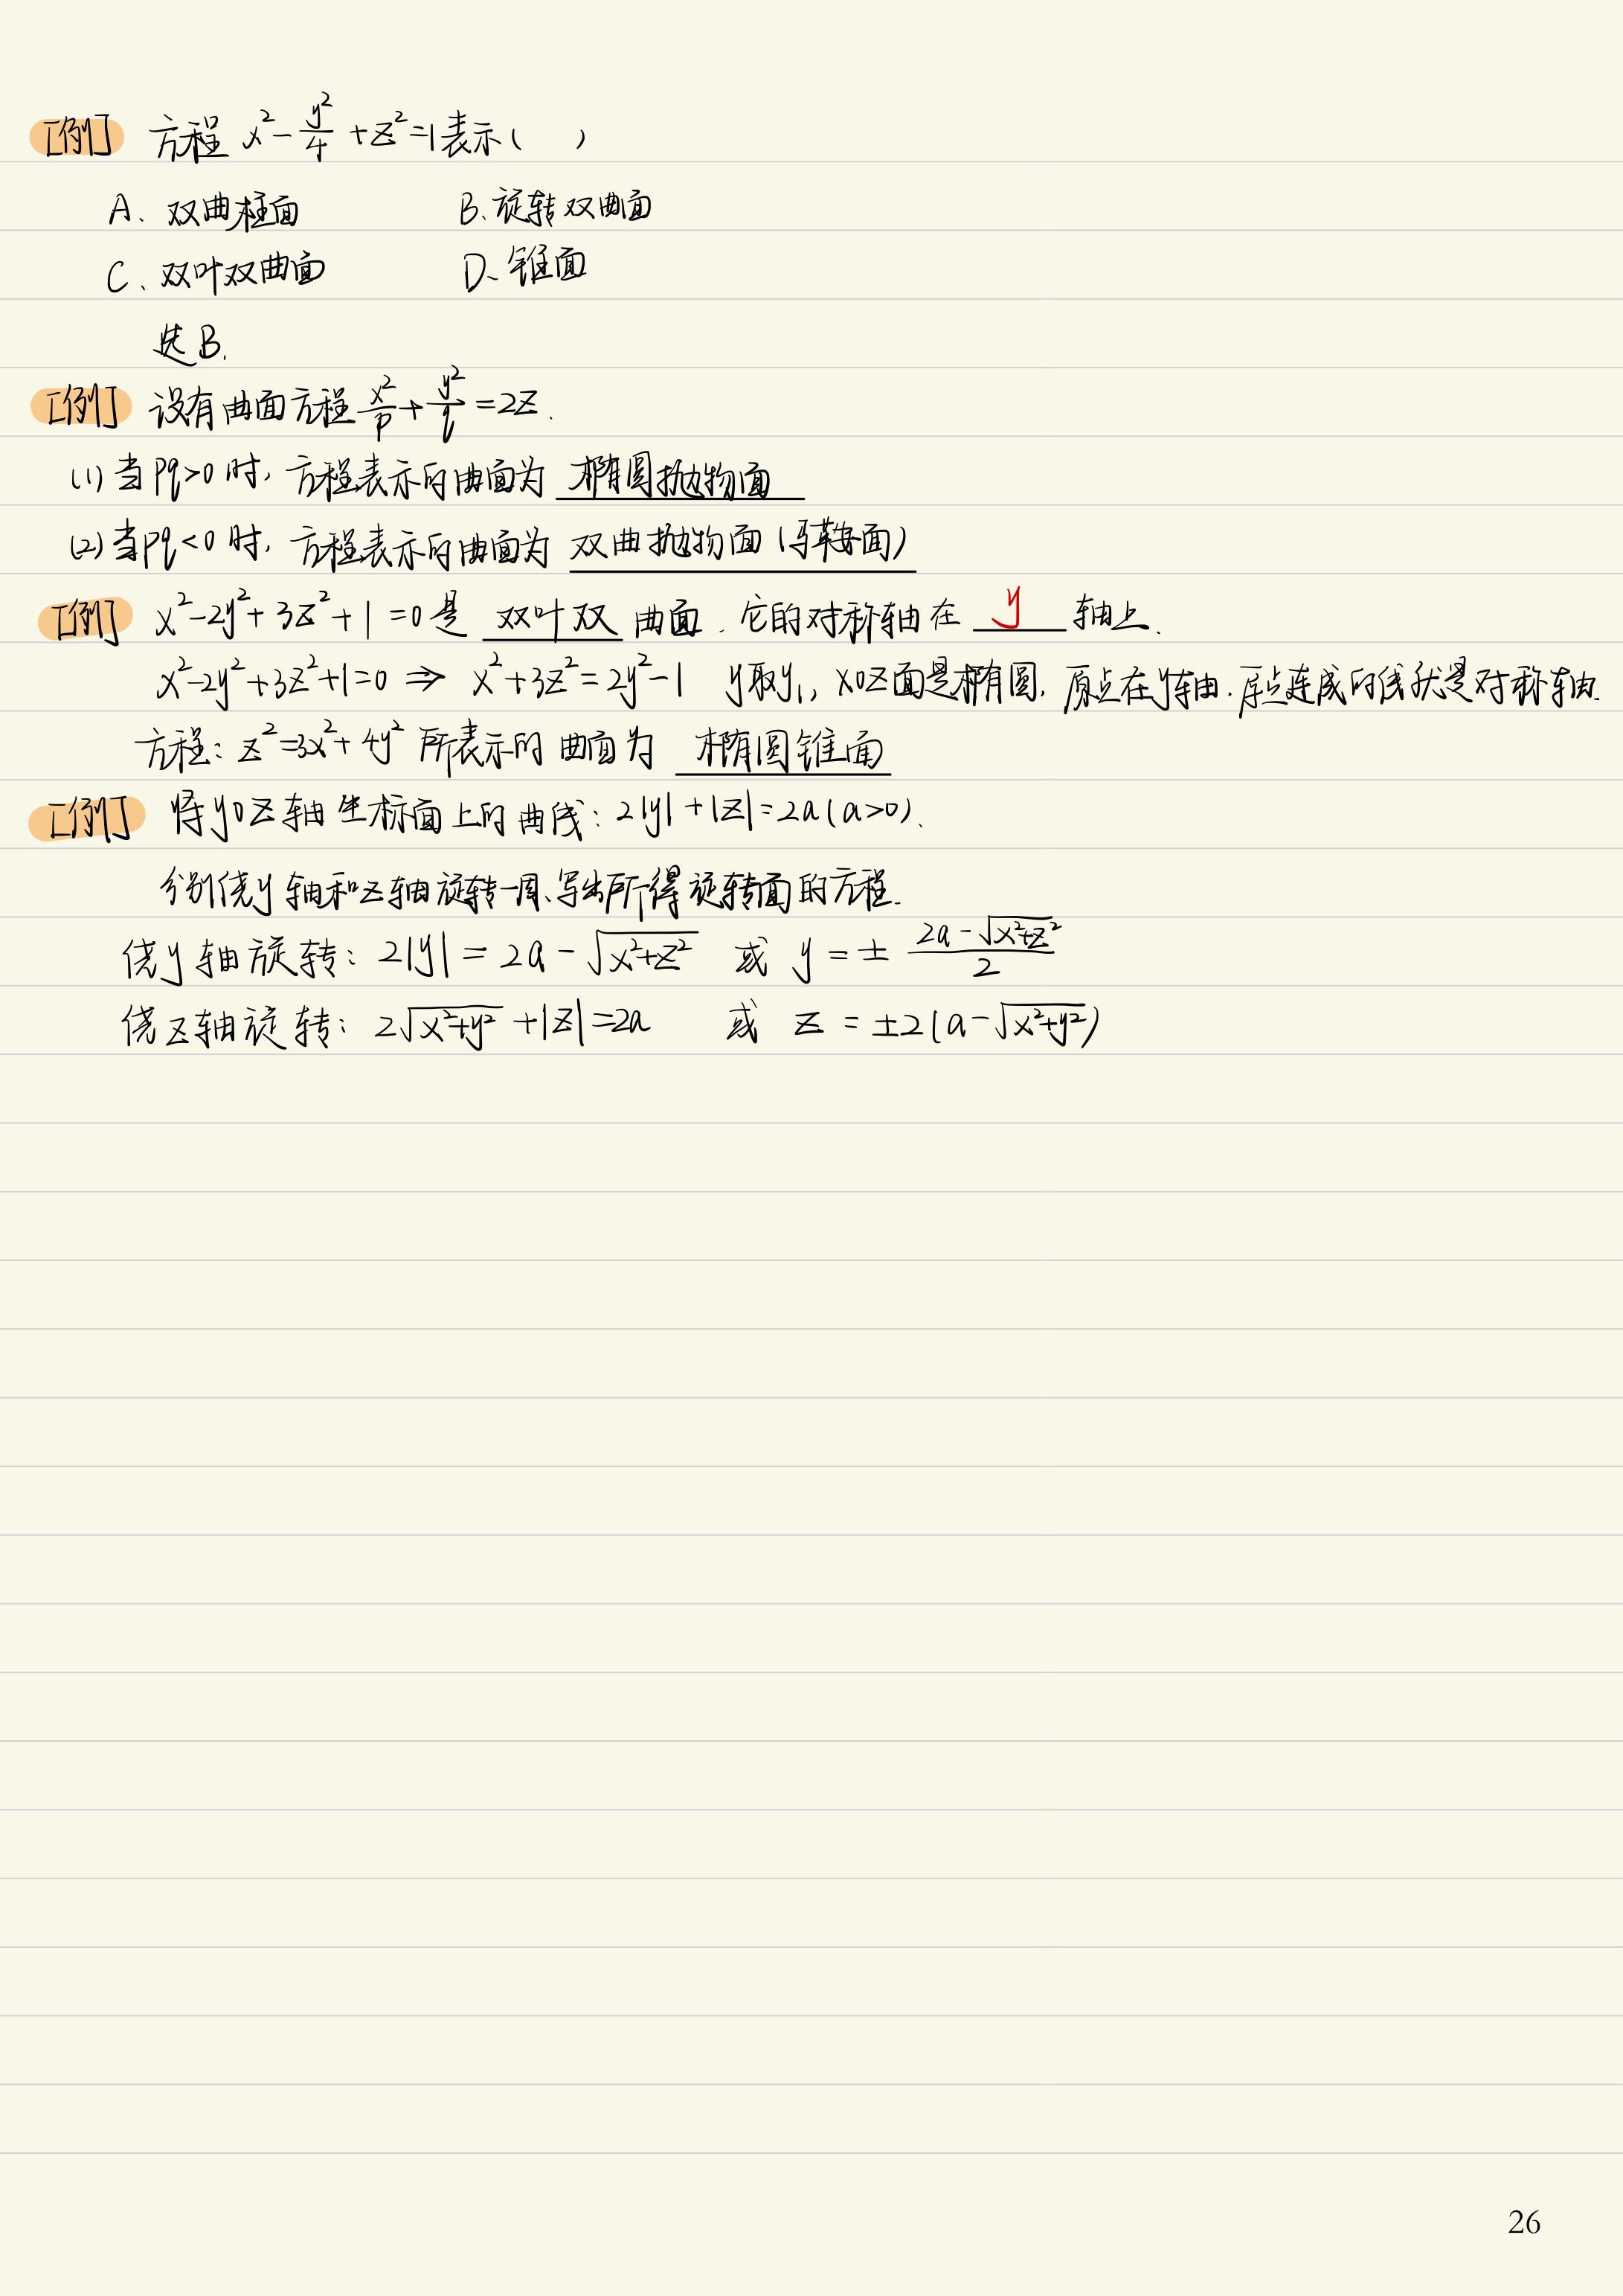 [例] 方程 x²-y²/4+z²=1表示( )
A、双曲柱面 B、旋转双曲面
C、双叶双曲面 D、锥面
选B.
[例] 设有曲面方程x²/p+y²/q=2z.
(1)当pq>0时,方程表示的曲面为 椭圆抛物面
(2)当pq<0时,方程表示的曲面为 双曲抛物面(马鞍面)
[例] x²-2y²+3z²+1=0是 双叶双 曲面.它的对称轴在 y 轴上.
x²-2y²+3z²+1=0 ⇒ x²+3z²=2y²-1 y取y₁, xoz面是椭圆,原点在y轴.原点连成的线就是对称轴.
方程:z²=3x²+4y² 所表示的曲面为 椭圆锥面
[例] 将yoz轴坐标面上的曲线:2|y|+|z|=2a(a>0).
分别绕y轴和z轴旋转一周、写出所得旋转面的方程.
绕y轴旋转: 2|y|=2a-√(x²+z²) 或 y=±(2a-√(x²+z²))/2
绕z轴旋转: 2√(x²+y²)+|z|=2a 或 z=±2(a-√(x²+y²))
26